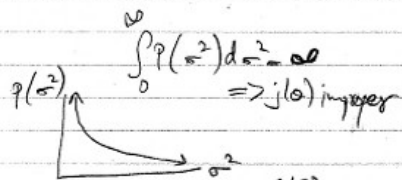 ∞
∫ P(σ²) dσ² = ∞
0
=> j(θ) improper
p(σ²)
σ²